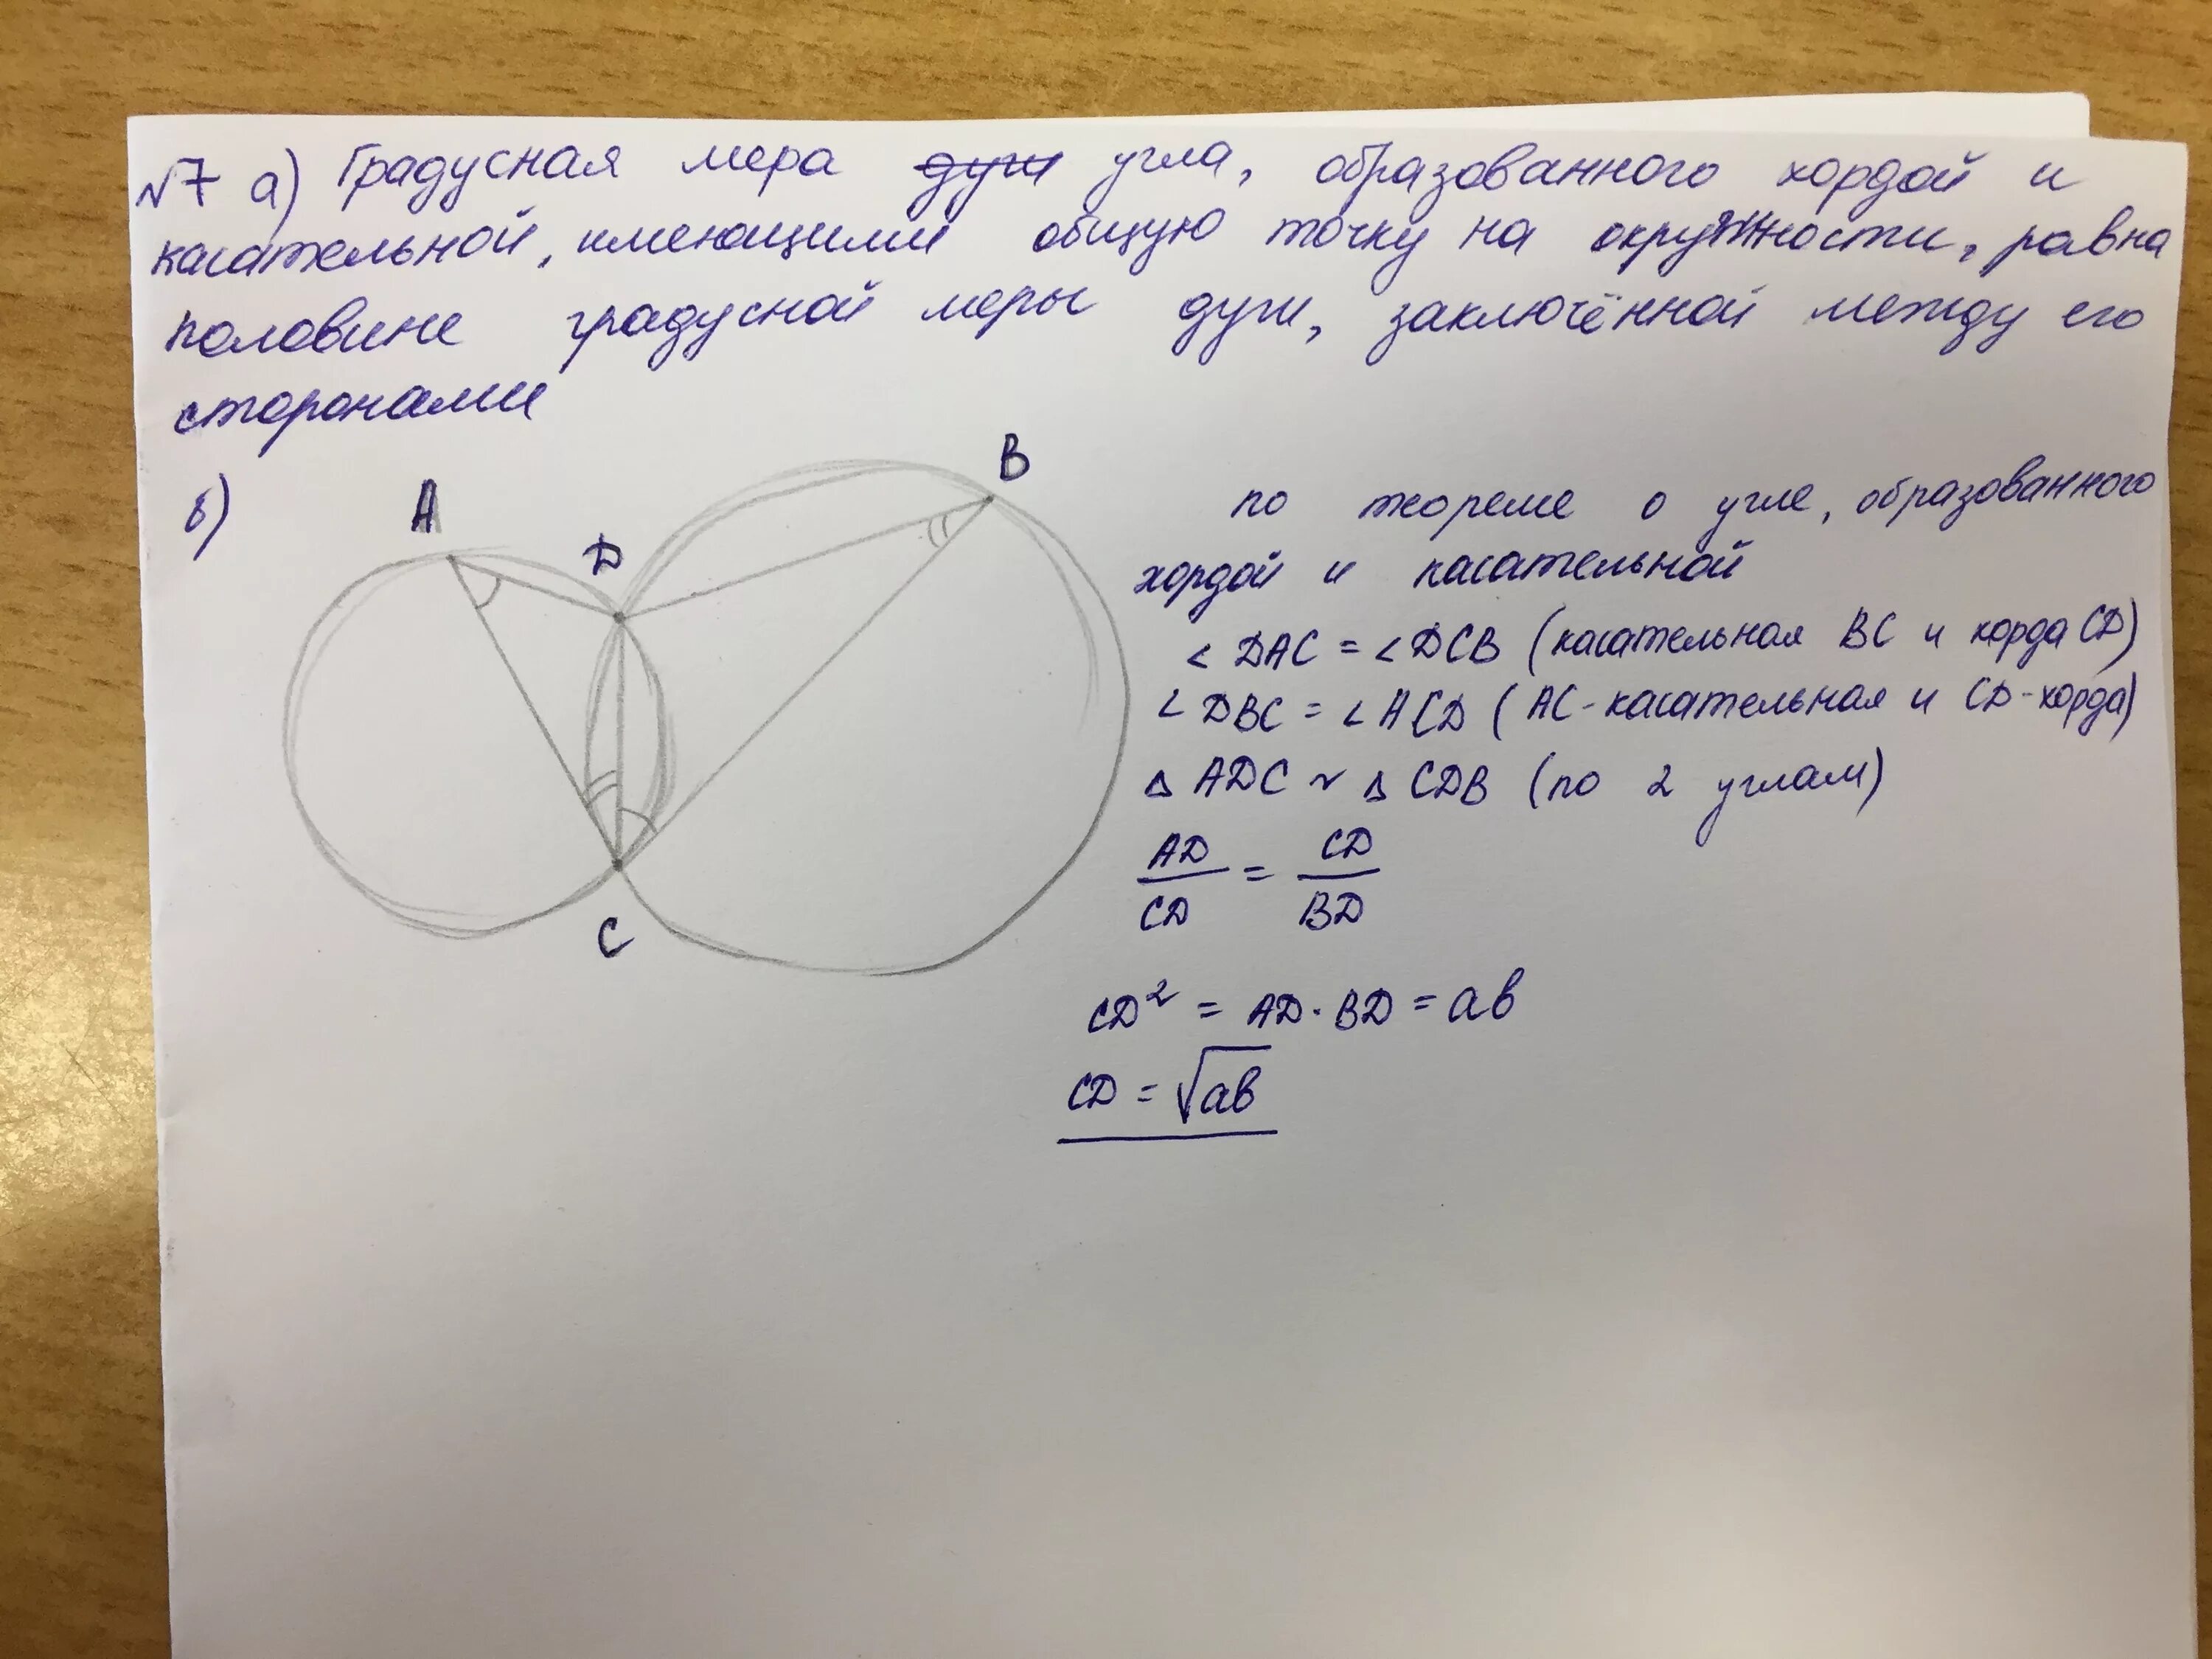 №7 а) Градусная мера дуги угла, образованного хордой и
касательной, имеющими общую точку на окружности, равна
половине градусной меры дуги, заключённой между его
сторонами
б)
A
D
B
C
по теореме о угле, образованного
хордой и касательной
∠DAC = ∠DCB (касательная BC и хорда CD)
∠DBC = ∠ACD (AC - касательная и CD - хорда)
△ADC ~ △CDB (по 2 углам)
AD/CD = CD/BD
CD² = AD · BD = ab
CD = √ab